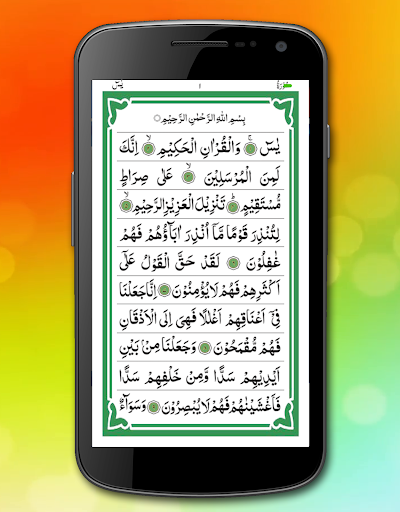 یٰسٓ ١ سُوْرَةُ
بِسْمِ اللّٰهِ الرَّحْمٰنِ الرَّحِیْمِ
یٰسٓ ۚ وَالْقُرْاٰنِ الْحَكِیْمِ ۙ اِنَّكَ
لَمِنَ الْمُرْسَلِیْنَ ۙ عَلٰی صِرَاطٍ
مُّسْتَقِیْمٍ ؕ تَنْزِیْلَ الْعَزِیْزِ الرَّحِیْمِ ۙ
لِتُنْذِرَ قَوْمًا مَّاۤ اُنْذِرَ اٰبَآؤُهُمْ فَهُمْ
غٰفِلُوْنَ لَقَدْ حَقَّ الْقَوْلُ عَلٰۤی
اَكْثَرِهِمْ فَهُمْ لَا یُؤْمِنُوْنَ اِنَّا جَعَلْنَا
فِیْۤ اَعْنَاقِهِمْ اَغْلٰلًا فَهِیَ اِلَی الْاَذْقَانِ
فَهُمْ مُّقْمَحُوْنَ وَجَعَلْنَا مِنْۢ بَیْنِ
اَیْدِیْهِمْ سَدًّا وَّمِنْ خَلْفِهِمْ سَدًّا
فَاَغْشَیْنٰهُمْ فَهُمْ لَا یُبْصِرُوْنَ وَسَوَآءٌ